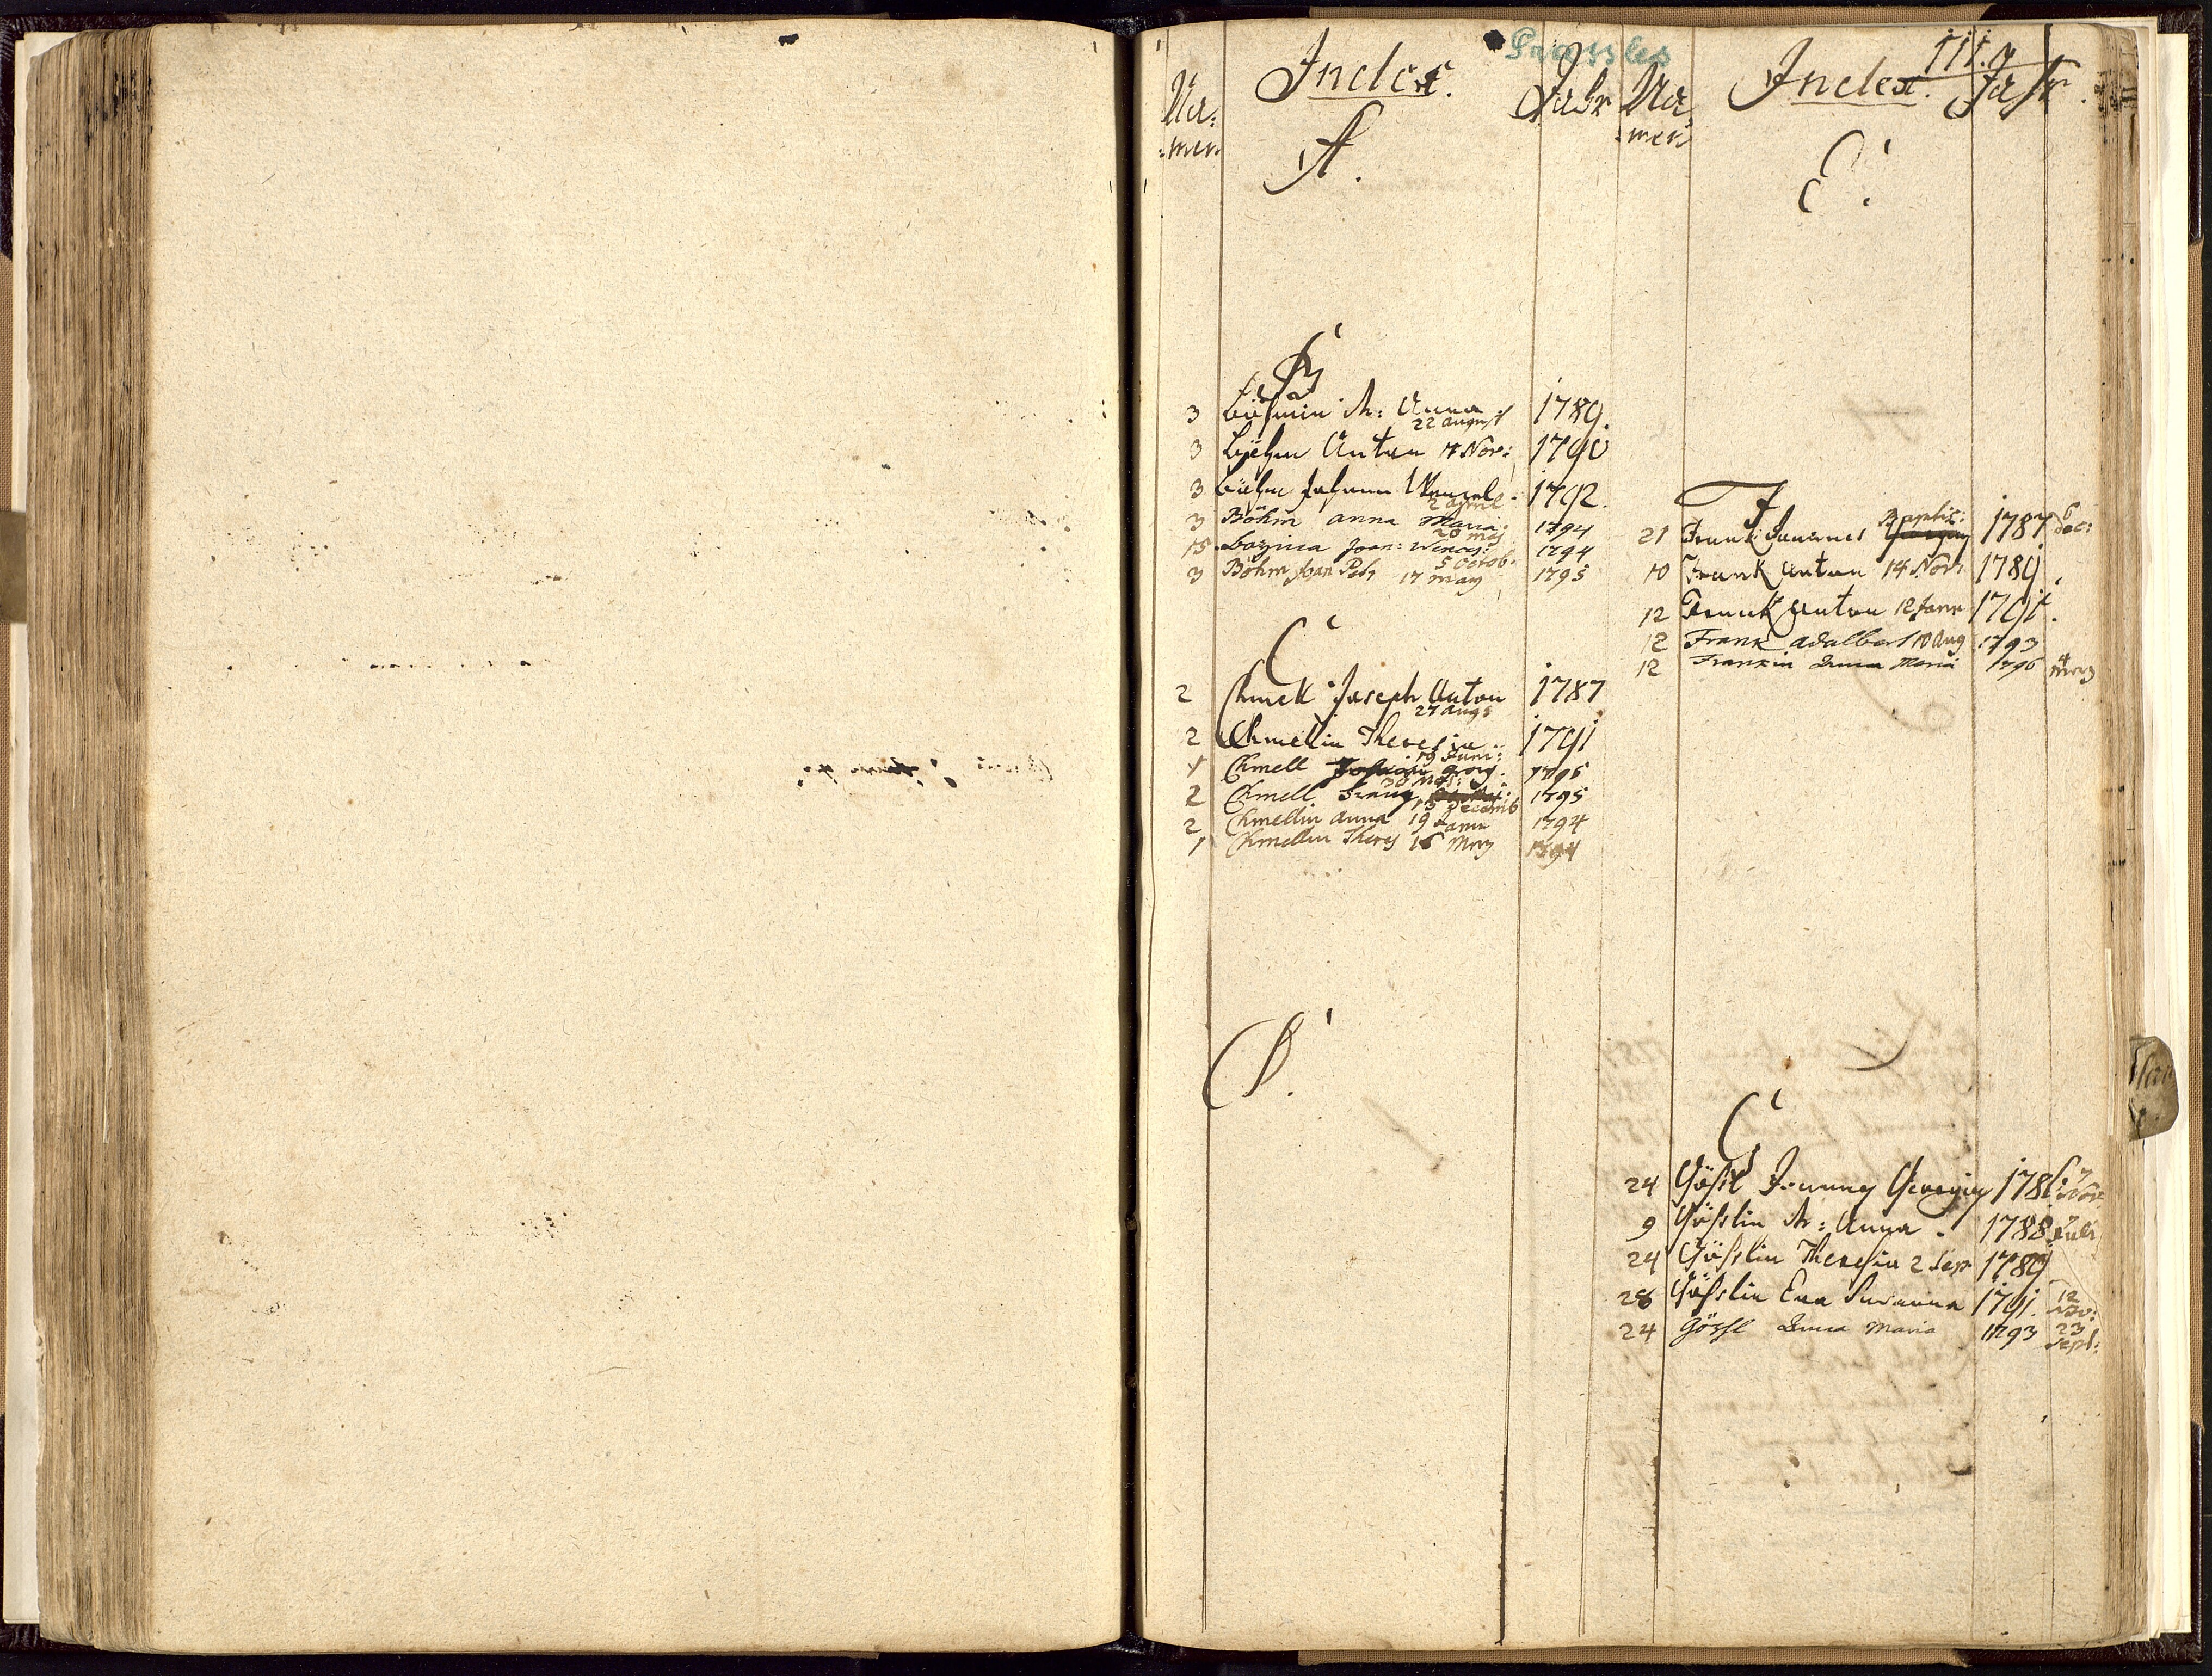 Nu:
:mer.
Index.
Jahr
A.
B
3 Böhmin M: Anna 1789.
22 August
3 Böhm Anton 17 Nov: 1790
3 Böhm Johann Wenzel. 1792.
2 April
3 Böhm anna Maria. 1794
20 May
15 Joan: Wences: 1794
5 Octob.
3 Böhm Joan 17 May 1795
C
2 Chmell Joseph Anton 1787
27 Augs
2 Chmellin Theresia 1791
19 Juni:
1 Chmell Georg. 1795
30
2 Chmell Franz 1795
13 Decemb
2 Chmellin anna 19 Janu 1794
1 Chmellin Theres 16 Merz 1794
D.
Nu
:mer
Index. Jahr.
E.
F
Baptis:
21 Frank Joannes 1787 6 Dec:
10 Frank Anton 14 Novr 1789.
12 Frank Anton 12 Janr 1791.
12 Frank Adalbert 10 Aug 1793
12 Frankin Anna Maria 1796 4 Merz
G
24 Gößl Joannes Georgius 1786 7 Nov
9 Gößlin M: Anna. 1788 Juli
24 Gößlin Theresia 2 Sep 1789
28 Gößlin Eva Susanna 1791. 12 Nov:
24 Gößl Anna Maria 1793 23 Sept: